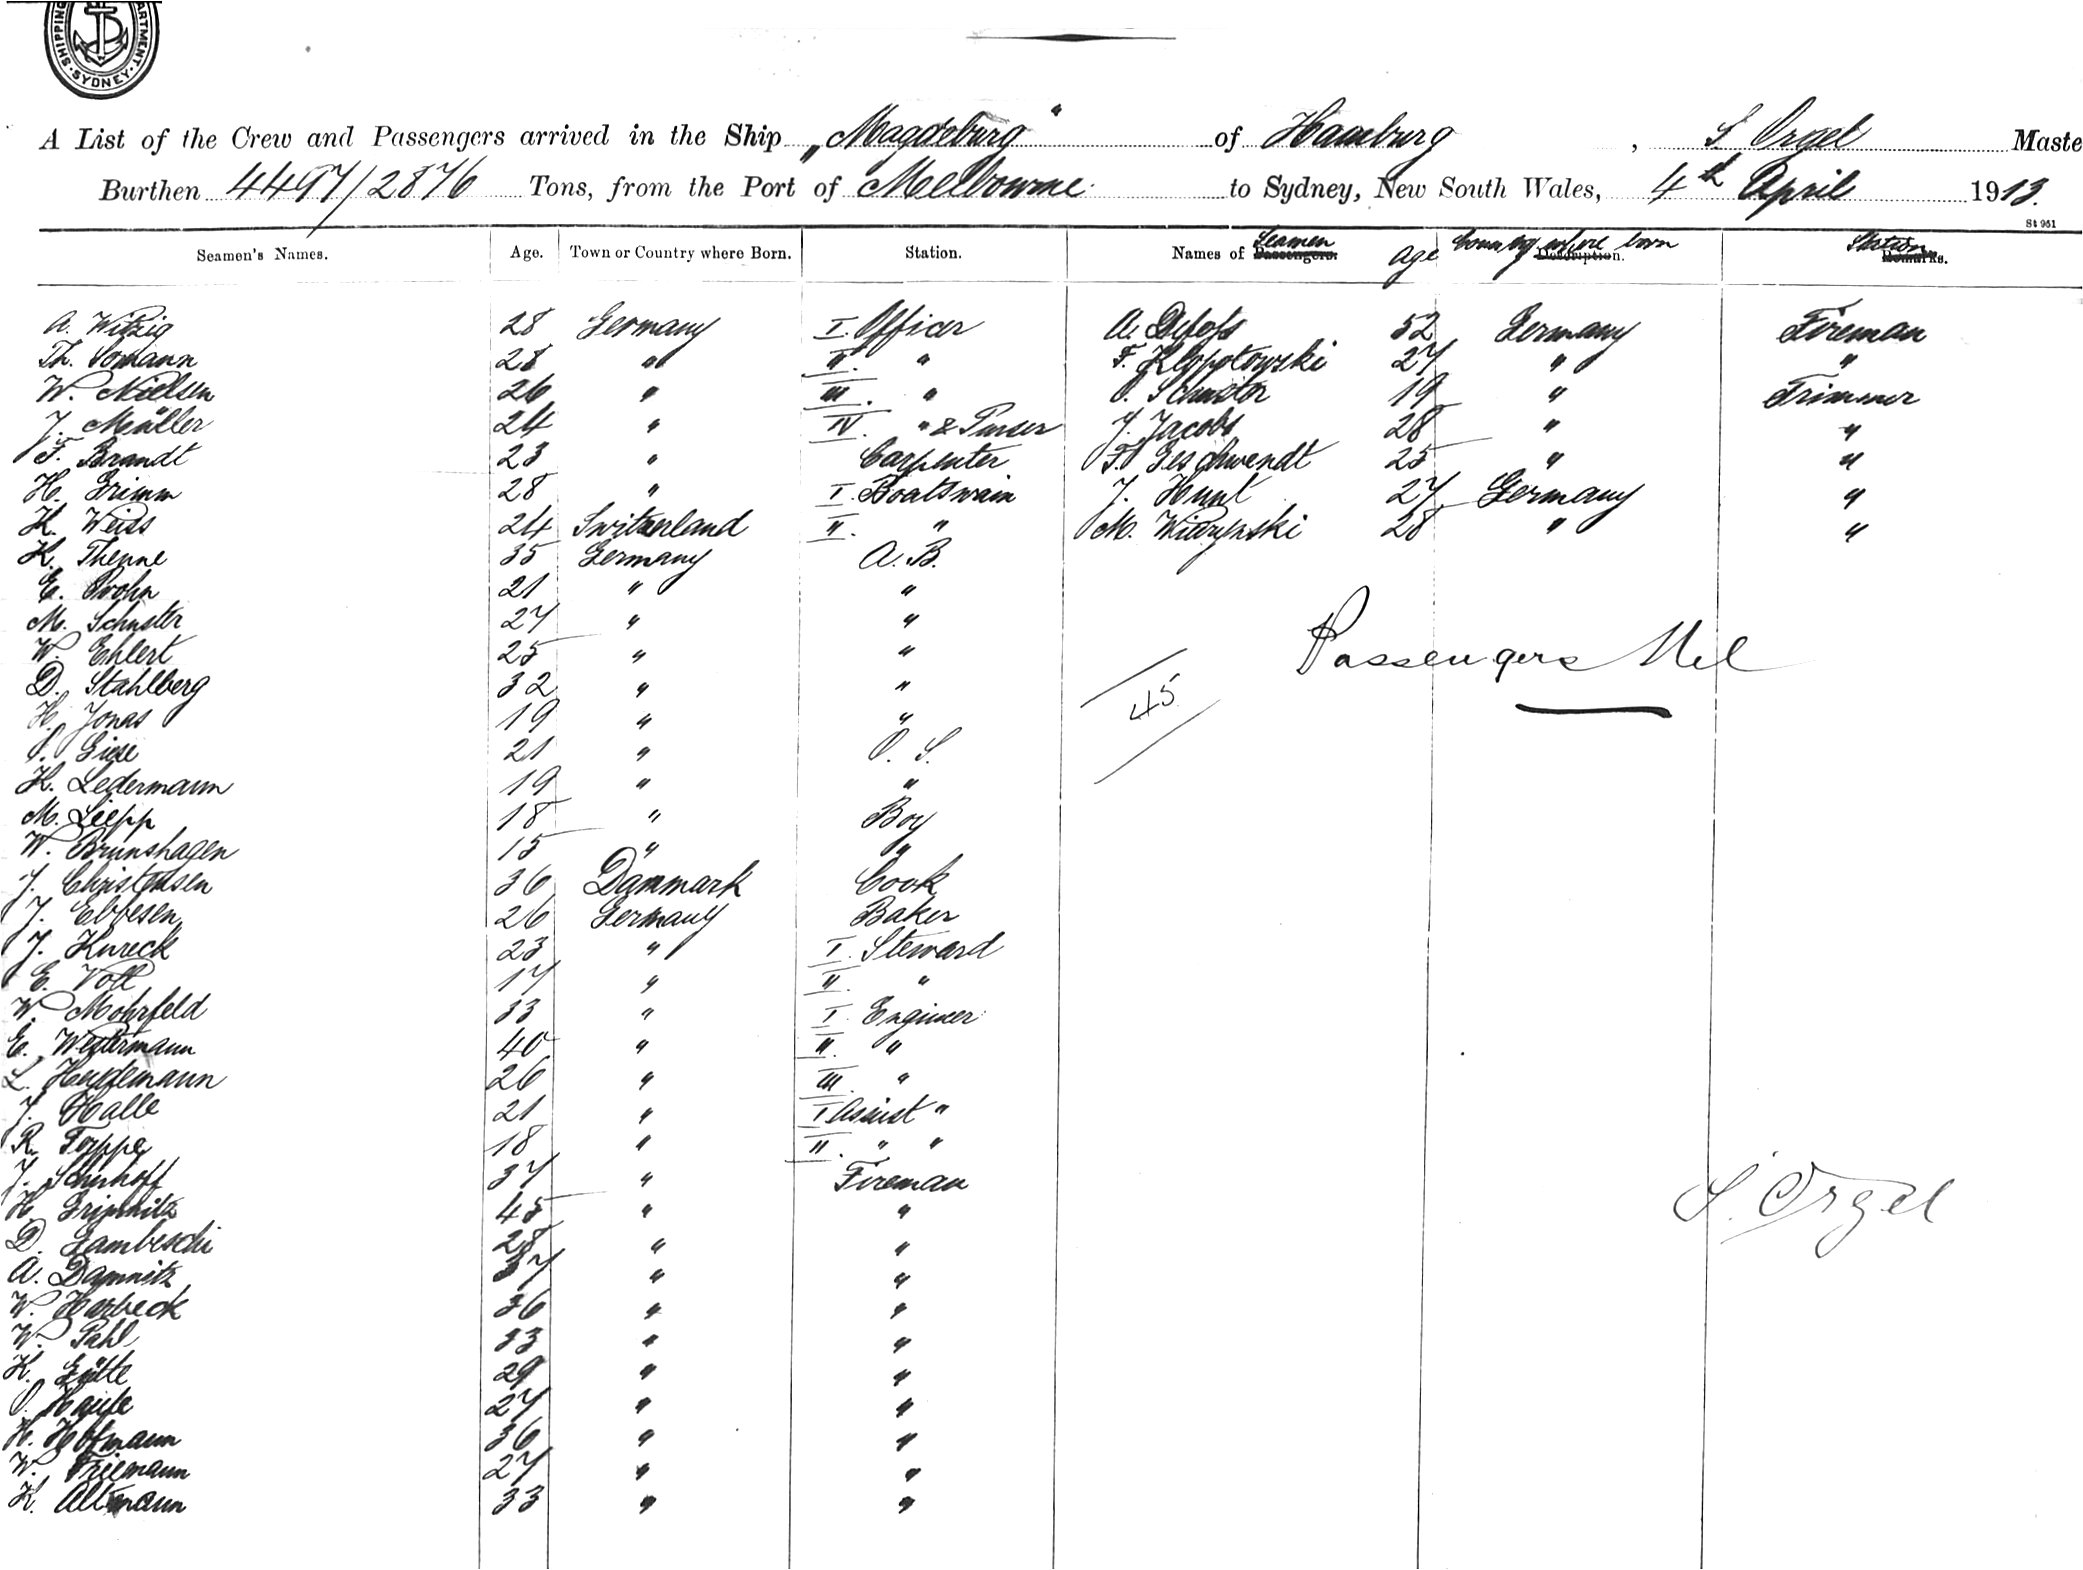 SHIPPING DEPARTMENT · SYDNEY ·
A List of the Crew and Passengers arrived in the Ship „Magdeburg" of Hamburg, S Orgel Maste
Burthen 4497/2876 Tons, from the Port of Melbourne to Sydney, New South Wales, 4th April 1913.
St 951
Seamen's Names. Age. Town or Country where Born. Station. Names of Passengers. Seamen Age Description. Country where born Remarks. Station
A. Witzig 28 Germany I. Officer A. Detofs 52 Germany Fireman
Th. Somann 28 " II. " F. Klopotowski 27 " "
W. Nielsen 26 " III. " O. Schuster 19 " Trimmer
J. Müller 24 " IV. " & Purser J. Jacobs 28 " "
F. Brandt 23 " Carpenter F. Geschwendt 25 " "
H. Grimm 28 " I. Boatswain J. Hunt 27 Germany "
K. Weiss 24 Switzerland II. " M. 28 " "
K. Thenne 35 Germany A. B.
E. Prohn 21 " "
M. Schuster 27 " "
W. Ehlert 25 " "
D. Stahlberg 32 " "
H. Jonas 19 " "
O. Giese 21 " O. S.
K. Ledermann 19 " "
M. Siepp 18 " Boy
W. Brunshagen 15 " "
J. Christensen 36 Danmark Cook
J. Ebbesen 26 Germany Baker
J. Kureck 23 " I. Steward
E. Voll 17 " II. "
W. Mohrfeld 33 " I. Engineer
E. Westermann 40 " II. "
L. Heydemann 26 " III. "
J. Halle 21 " I Assist "
R. Torppe 18 " II. " "
J. Schuhoff 37 " Fireman
H. Gripnitz 45 " "
D. Gambeschi 28 " "
A. Damnitz 37 " "
W. Harbeck 36 " "
W. Pahl 33 " "
K. Gütte 29 " "
O. Haufe 27 " "
H. Hofmann 36 " "
W. Friemann 27 " "
K. Altmann 33 " "
Passengers Nil
45
S. Orgel